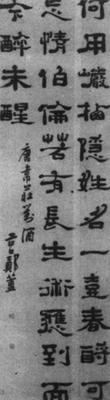 何用巖栖隱姓名一壺春酎可
忘情伯倫若有長生術應到而
今醉未醒
唐韋莊對酒
谷口鄭簠